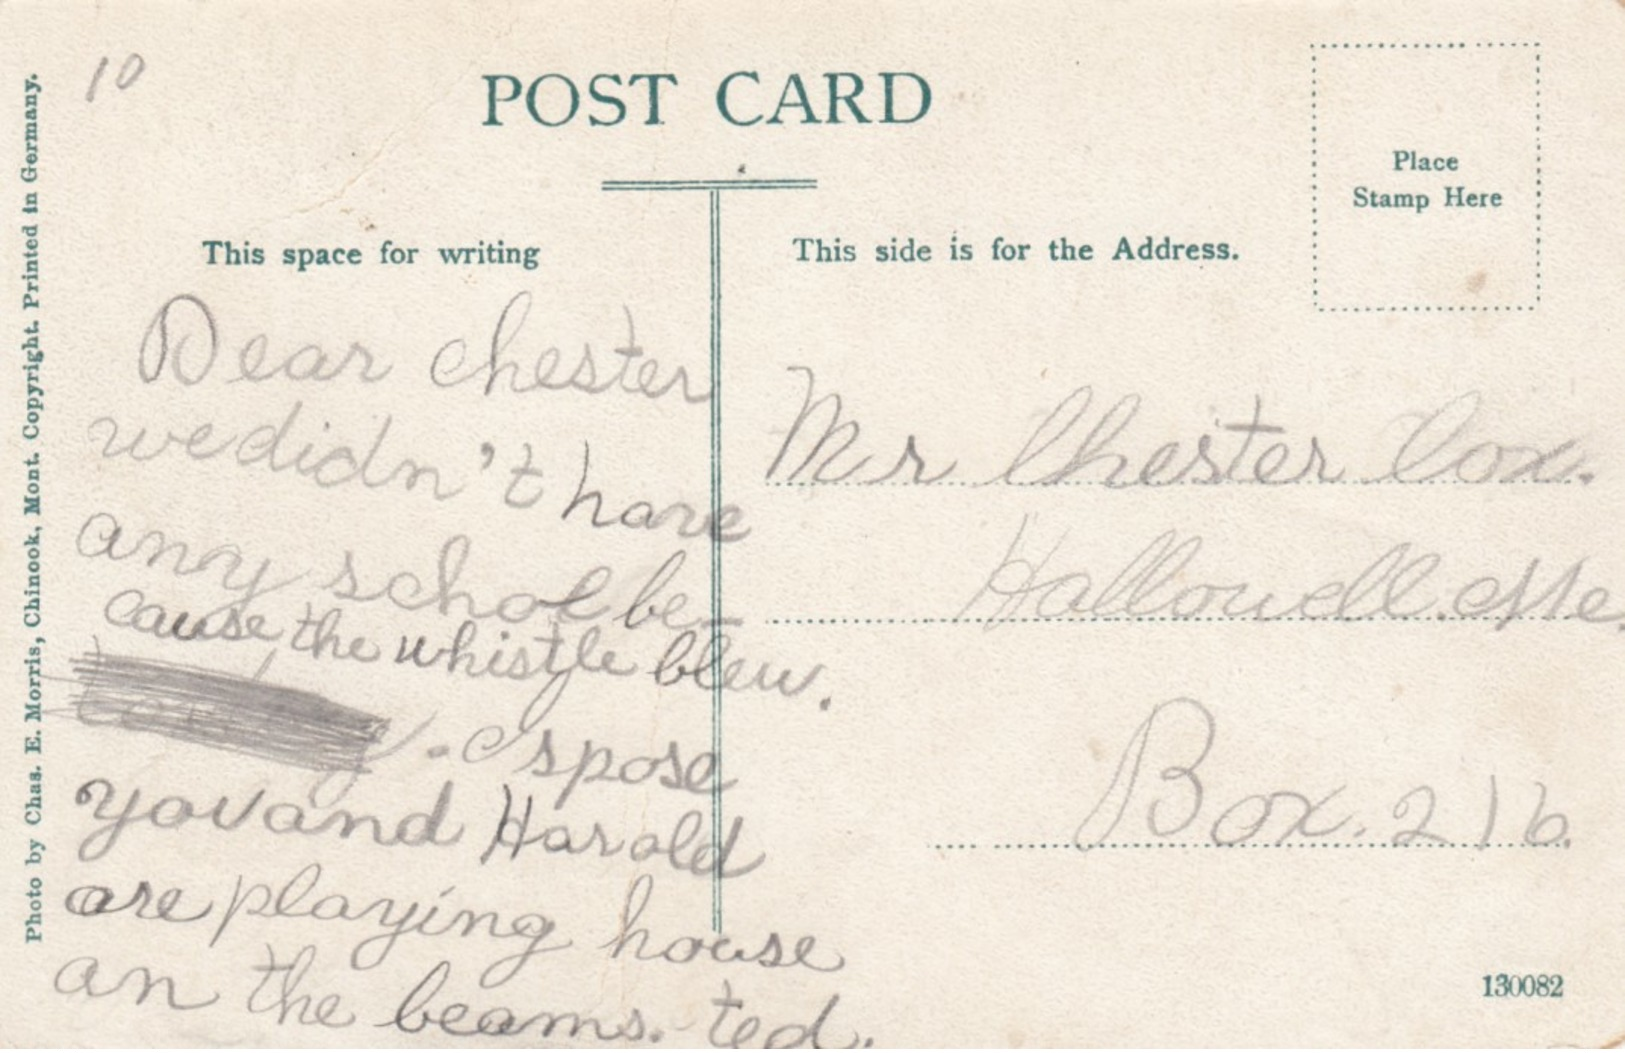 10
POST CARD
Place
Stamp Here
This space for writing
This side is for the Address.
Dear Chester
we didn't have
any schol be-
cause the whistle blew.
. I spose
you and Harold
are playing house
an the beams. ted.
Mr Chester Cox.
Hallowell. Me.
Box. 216.
130082
Photo by Chas. E. Morris, Chinook, Mont. Copyright. Printed in Germany.